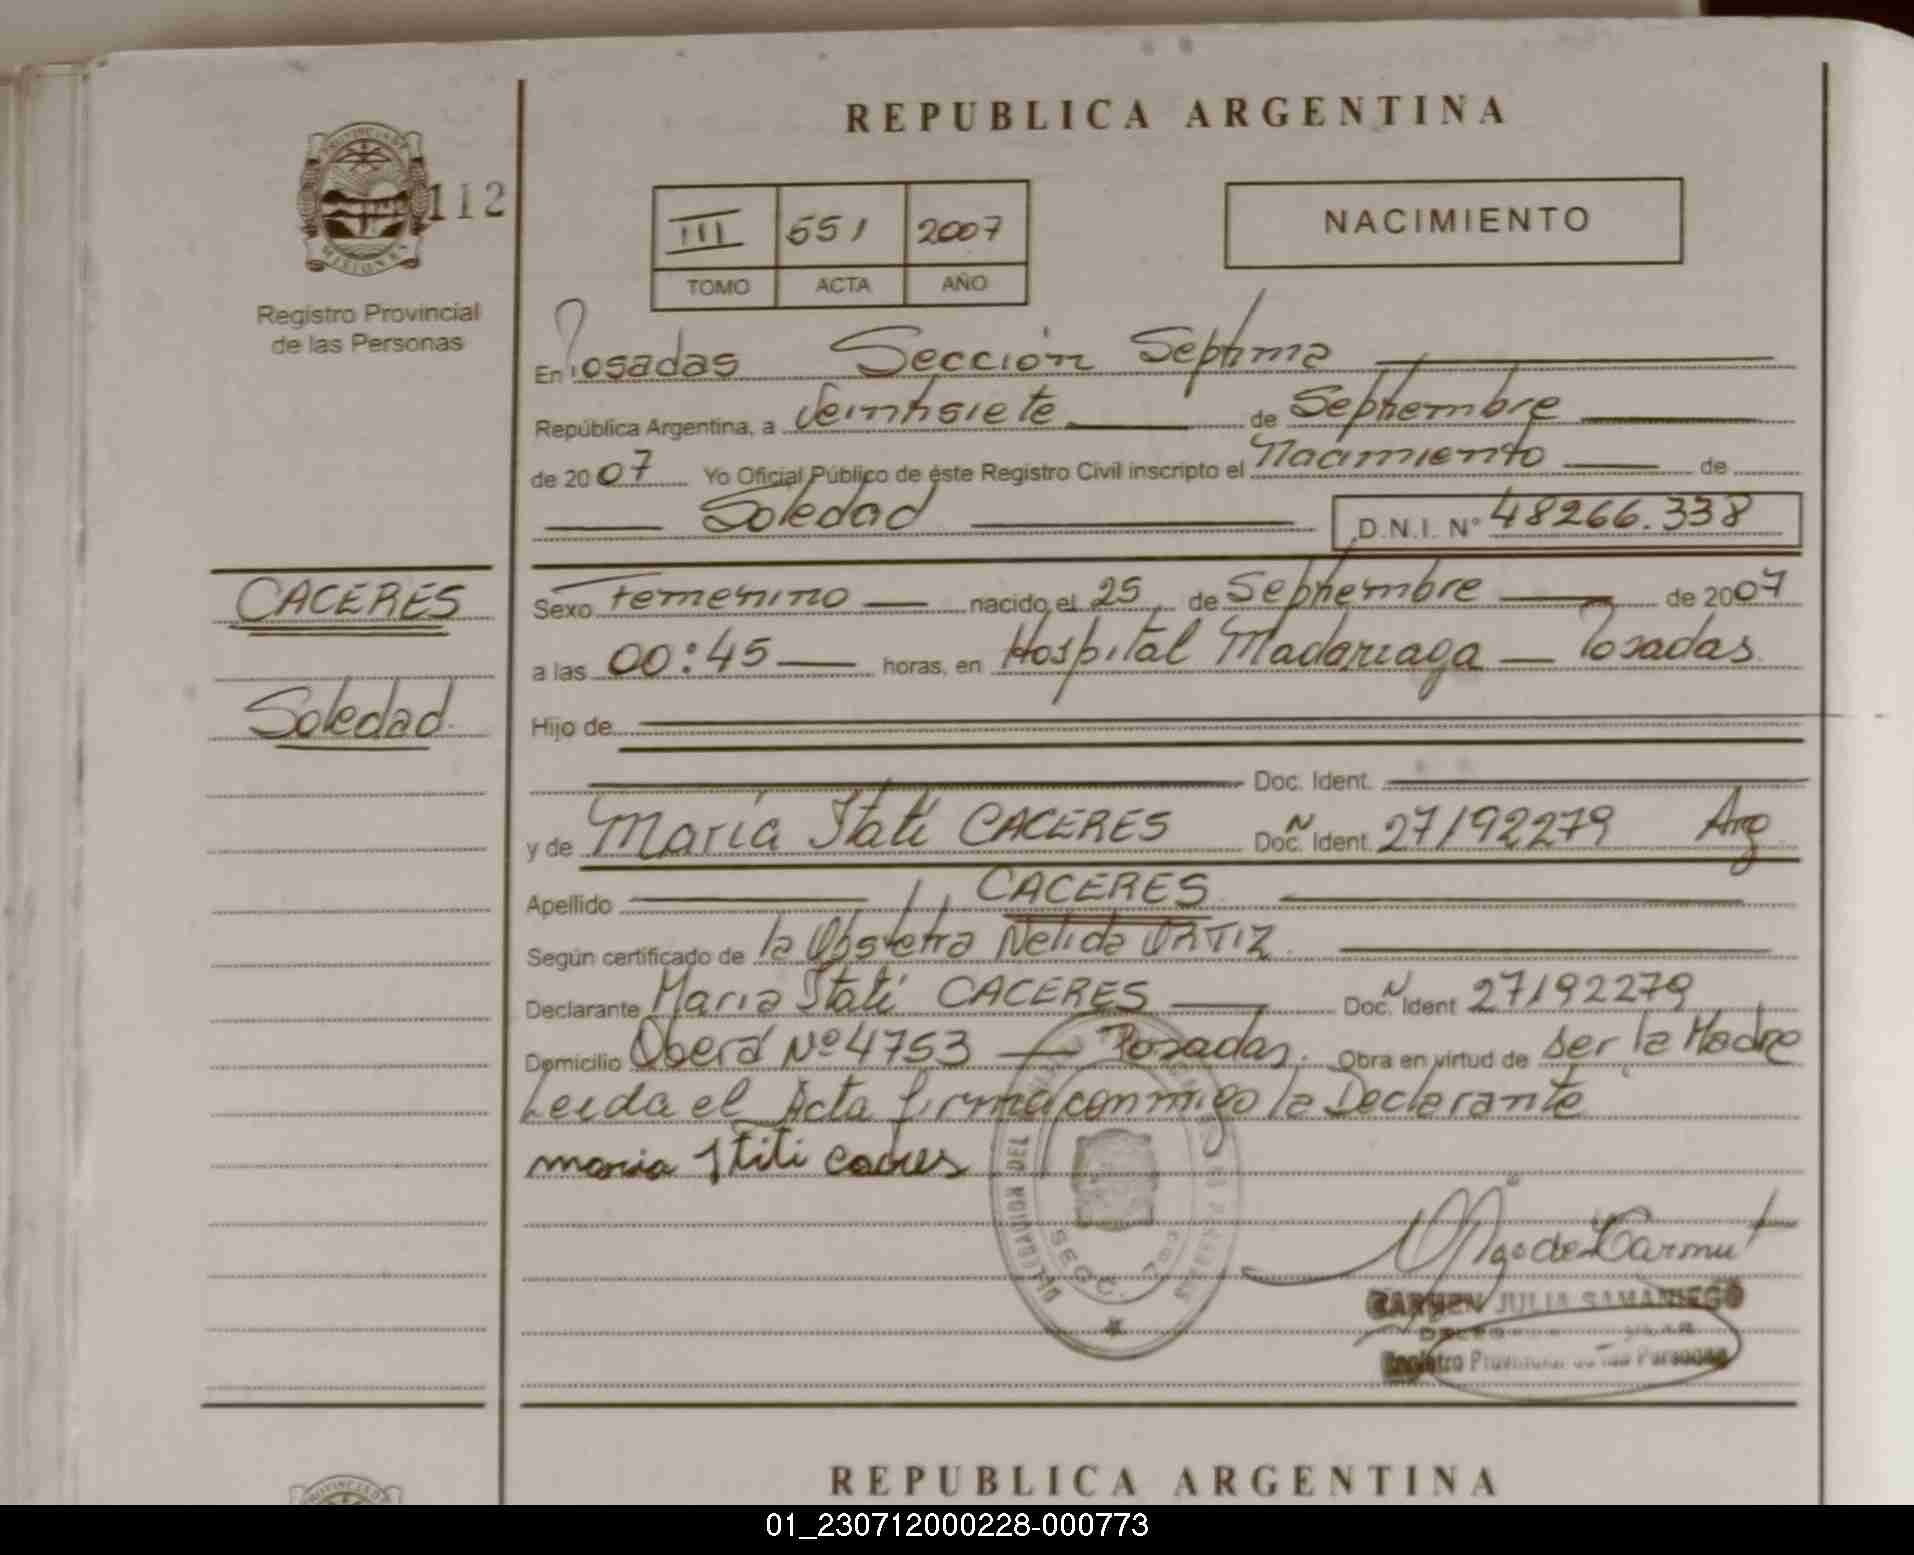 REPUBLICA ARGENTINA
PROVINCIA DE MISIONES
112
III 551 2007
TOMO ACTA AÑO
NACIMIENTO
Registro Provincial
de las Personas
En Posadas Sección Septima
República Argentina, a Veintisiete de Septiembre
de 2007 Yo Oficial Público de éste Registro Civil inscripto el Nacimiento de
Soledad D.N.I. N° 48266.338
CACERES
Soledad.
Sexo Femenino nacido el 25 de Septiembre de 2007
a las 00:45 horas, en Hospital Madariaga — Posadas.
Hijo de
Doc. Ident.
y de María Itatí CACERES Doc. Ident. 27192279 Arg
Apellido CACERES
Según certificado de la Obstetra Nelida ORTIZ.
Declarante Maria Itatí CACERES Doc. Ident 27192279
Domicilio Oberá Nº 4753 — Posadas. Obra en virtud de ser la Madre
Leida el Acta firma conmigo la Declarante
maria Ititi caceres
DELEGACION DEL
SECC. 7
CARMEN JULIA SAMANIEGO
Registro Provincial de las Personas
REPUBLICA ARGENTINA
01_230712000228-000773